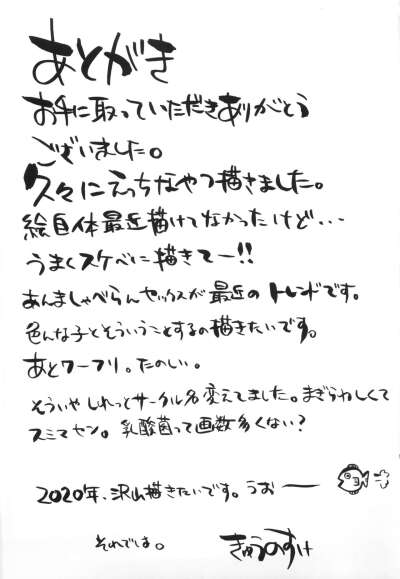 あとがき
お手に取っていただきありがとう
ございました。
久々にえっちなやつ描きました。
絵自体最近描けてなかったけど・・・
うまくスケベに描きてー!!
あんましゃべらんセックスが最近のトレンドです。
色んな子とそういうことするの描きたいです。
あとワーフリ。たのしい。
そういやしれっとサークル名変えてました。まぎらわしくて
スミマセン。乳酸菌って画数多くない?
2020年、沢山描きたいです。うおー
それでは。 きゅうのすけ